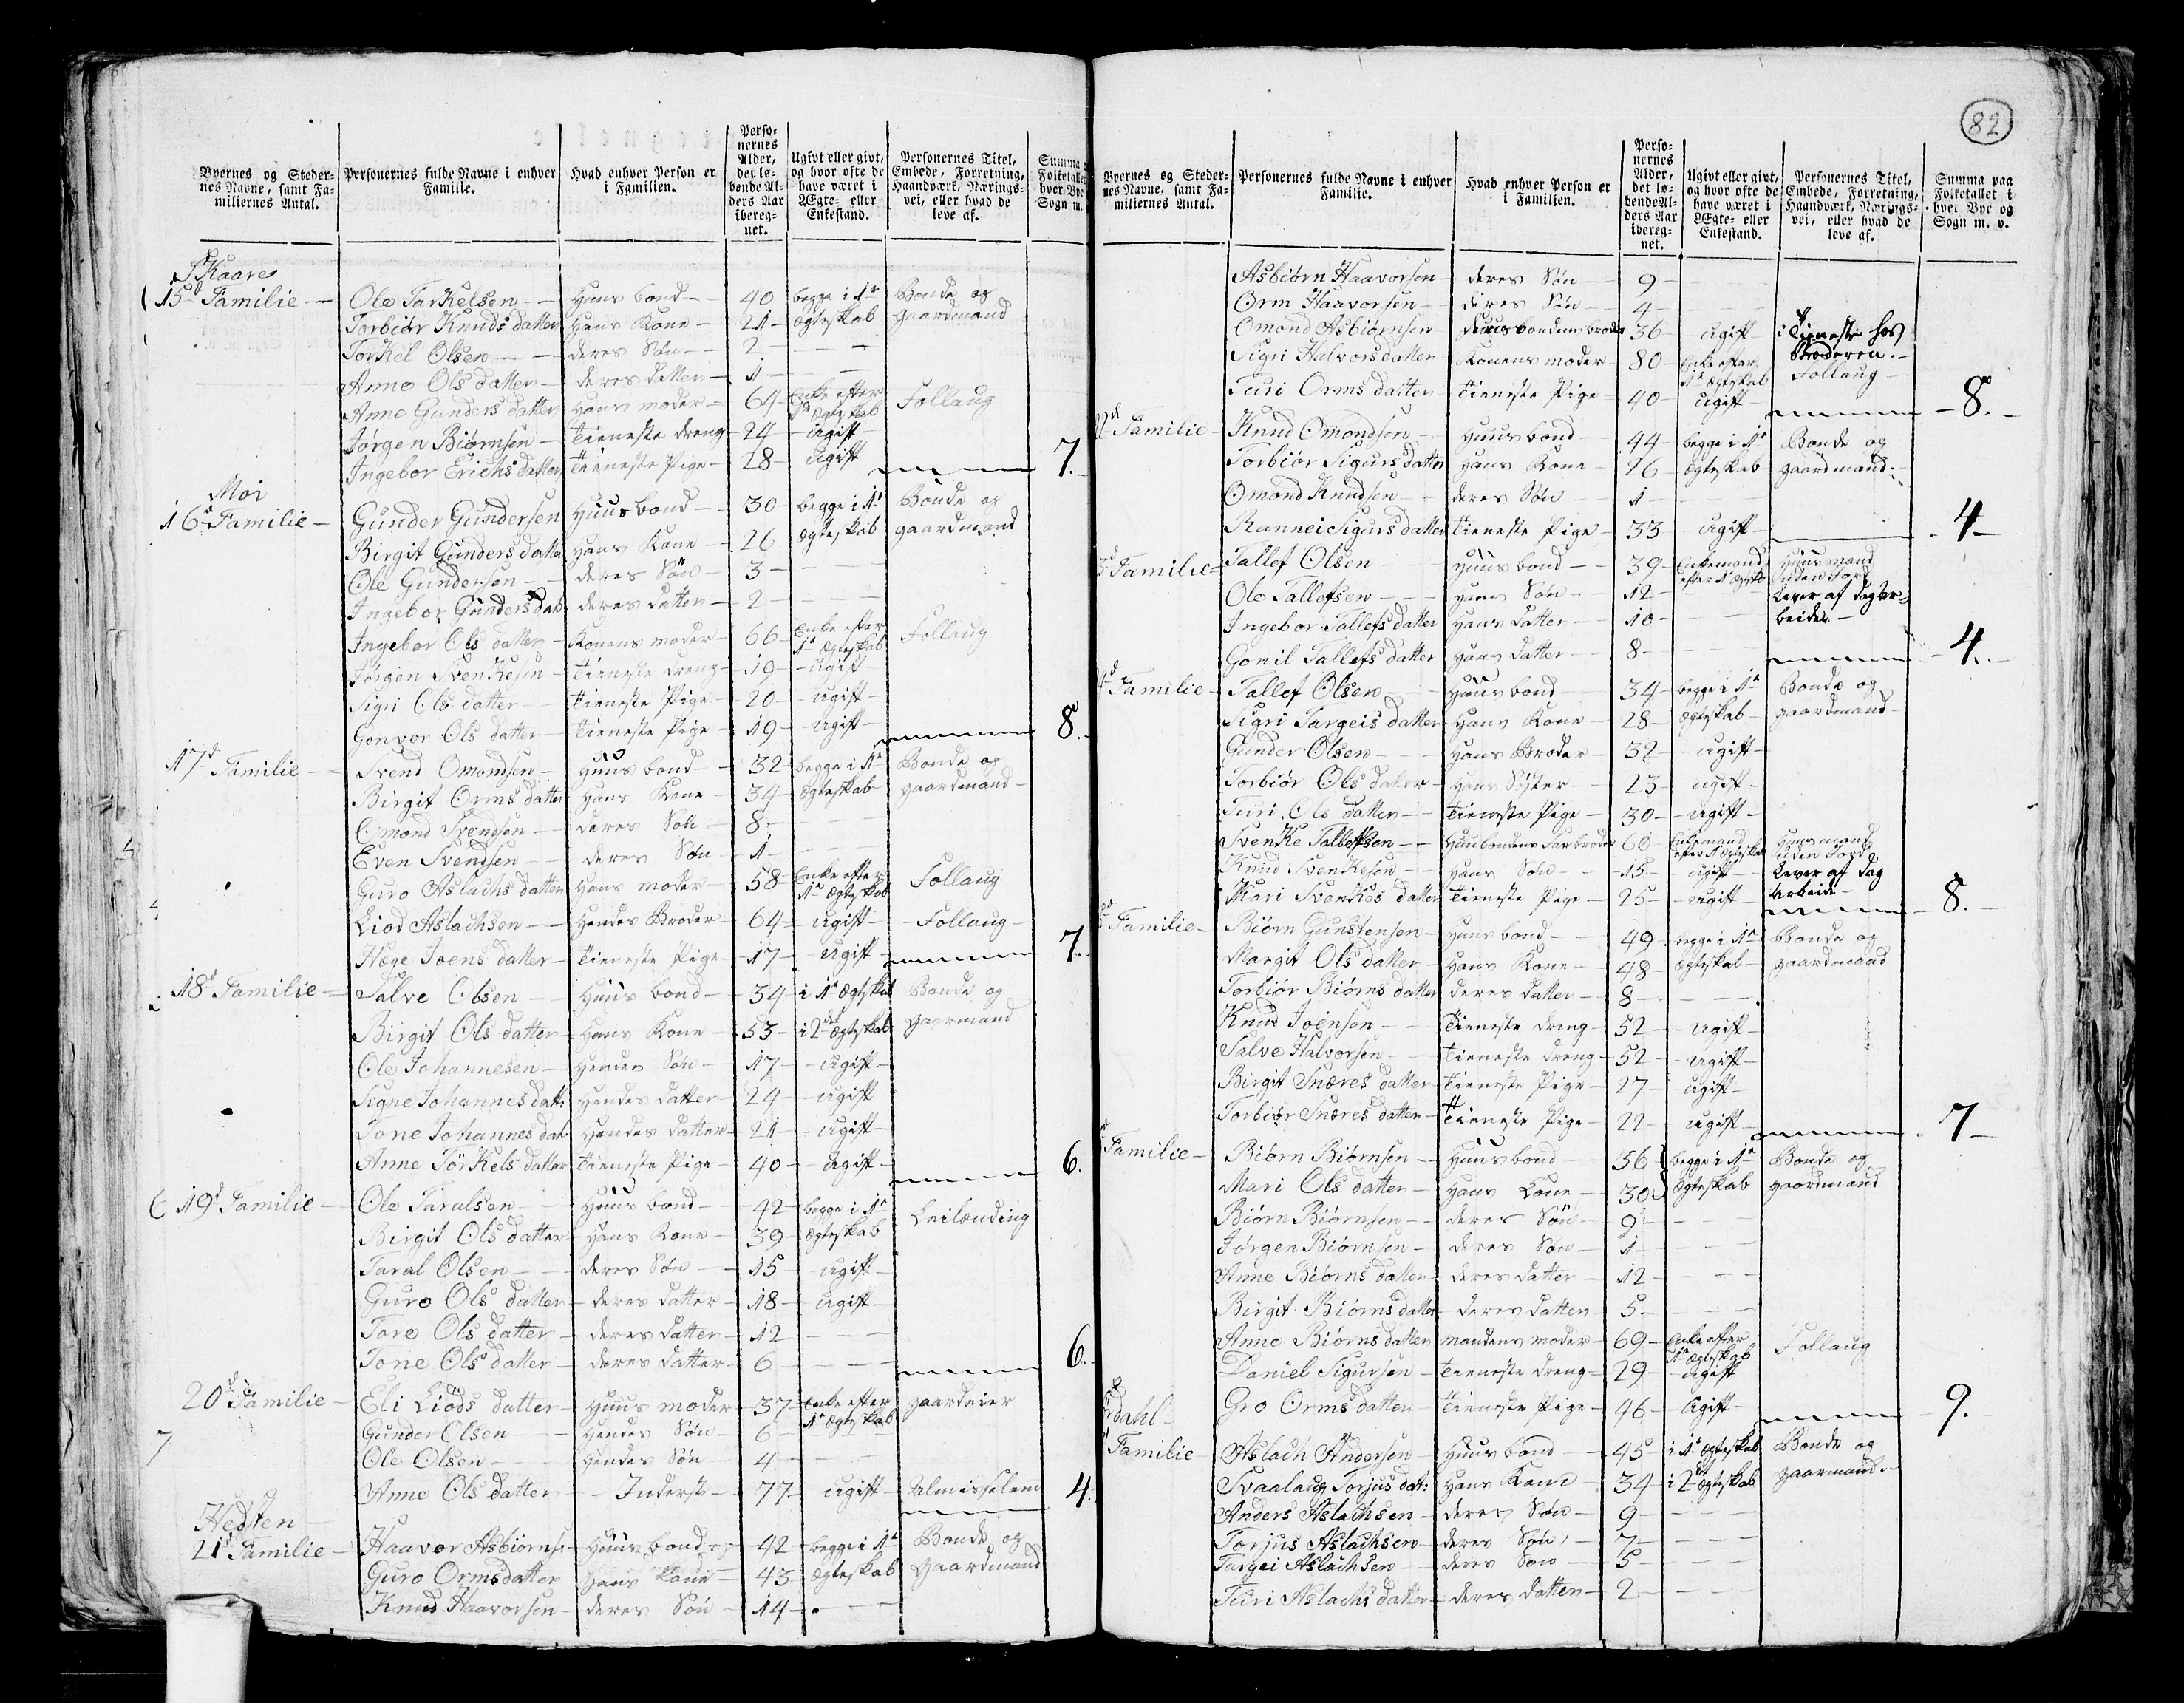 82
Byernes og Steder-
nes Navne, samt Fa-
miliernes Antal.
Personernes fulde Navne i enhver
Familie.
Hvad enhver Person er
i Familien.
Perso-
nernes
Alder,
det lø-
bende Al-
ders Aar
ibereg-
net.
Ugivt eller givt,
og hvor ofte de
have været i
Ægte- eller
Enkestand.
Personernes Titel,
Embede, Forretning,
Haandværk, Nærings-
vei, eller hvad de
leve af.
Summa
Folketallet
hver Bye
Sogn m.
Skaare
15d Familie — Ole Tarkelsen — Huusbond — 40 begge i 1ste Bonde og
Torbiør Knuds datter Hans Kone — 21 Ægteskab Gaardmand
Torkel Olsen — deres Søn — 2 —
Anne Ols datter — deres datter — 1 —
Anne Gunders datter Hans moder — 64 Enke efter 1ste Ægteskab Follaug
Jørgen Biørnsen — Tieneste dreng — 24 — ugift —
Ingebor Erichs datter Tieneste Pige — 28 — ugift 7.
Moi
16d Familie — Gunder Gundersen Huusbond — 30 begge i 1ste Bonde og
Birgit Gunders datter Hans Kone — 26 Ægteskab Gaardmand
Ole Gundersen — deres Søn — 3 —
Ingebor Gunders dat: deres datter — 2 —
Ingebor Ols datter — Konens moder — 66 Enke efter 1ste Ægteskab Follaug
Jørgen Svenkesen — Tieneste dreng — 19 — ugift
Sigri Ols datter — Tieneste Pige — 20 — ugift —
Gonvor Ols datter — Tieneste Pige — 19 — ugift — 8.
17d Familie — Svend Omondsen — Huusbond — 32 begge i 1ste Bonde og
Birgit Orms datter Hans Kone — 34 Ægteskab Gaardmand —
Omond Svendsen — deres Søn — 8 —
Even Svendsen — deres Søn — 1 —
Guro Aslachs datter Hans moder — 58 Enke efter 1ste Ægteskab Follaug
Liod Aslachsen — Hendes Broder — 64 — ugift — Follaug —
Hæge Joens datter — Tieneste Pige — 17 — ugift — 7.
18d Familie — Salve Olsen — Huusbond — 54 i 1ste Ægteskab Bonde og
Birgit Ols datter — Hans Kone — 53 i 2det Ægteskab Gaarmand
Ole Johannesen — Hendes Søn — 17 — ugift —
Signe Johannes datt: Hendes datter — 24 — ugift
Tone Johannes dat Hendes datter — 21 — ugift —
Anne Törkels datter Tieneste Pige — 40 — ugift — 6.
19d Familie — Ole Taralsen — Huusbond — 42 begge i 1ste Leilænding
Birgit Ols datter — Hans Kone — 39 Ægteskab
Taral Olsen — deres Søn — 15 ugift
Guro Ols datter — deres datter — 18 ugift —
Tore Ols datter — deres datter — 12 —
Tone Ols datter — deres datter — 6 — 6.
20d Familie — Eli Liods datter — Huus moder — 37 Enke efter 1ste Ægteskab Gaardeier
Gunder Olsen — Hendes Søn — 6 —
Ole Olsen — Hendes Søn — 4 —
Anne Ols datter — Inderste — 77 — ugift — Almisselem 4.
Hedsten —
21d Familie — Haavor Asbiørns: Huusbond — 42 — begge i 1ste Bonde og
Guro Ormsdatter Hans Kone — 43 Ægteskab Gaardmand
Knud Haavorsen — deres Søn — 14 —
Byernes og Steder-
nes Navne, samt Fa-
miliernes Antal.
Personernes fulde Navne i enhver
Familie.
Hvad enhver Person er
i Familien.
Perso-
nernes
Alder,
det lø-
bende Al-
ders Aar
ibereg-
net.
Ugivt eller givt,
og hvor ofte de
have været i
Ægte- eller
Enkestand.
Personernes Titel,
Embede, Forretning,
Haandværk, Nærings-
vei, eller hvad de
leve af.
Summa paa
Folketallet i
hver Bye og
Sogn m. v.
Asbiørn Haavorsen — deres Søn — 9 —
Orm Haavorsen — deres Søn — 4 —
Omond Asbiørnsen Huusbondens broder 36 — ugift — i Tieneste hos Broderen. —
Sigri Halvors datter Konens moder — 80 Enke efter 1ste Ægteskab Follaug —
Turi Orms datter — Tieneste Pige — 40 — ugift — 8. —
Familie — Knud Omondsen — Huusbond — 44 — begge i 1ste Bonde og
Torbiør Sigurs datter Hans Kone — 26 — Ægteskab Gaardmand. —
Omond Knudsen — deres Søn — 1 —
Rannei Sigurs datter Tieneste Pige — 33 ugift — 4 —
Familie — Tallef Olsen — Huusbond — 39 — Enkemand efter 1ste Ægtesk Huusmand uden Jord
Ole Tallefsen — Hans Søn — 12 — Lever af dag Ar-
Ingebor Tallefs datter Hans datter — 10 — beide. —
Gonil Tallefs datter Hans datter — 8 — 4. —
Familie — Tallef Olsen — Huusbond — 34 — begge i 1ste Bonde og
Sigri Targeis datter Hans Kone — 28 — Ægteskab — Gaardmand —
Gunder Olsen — Hans Broder — 32 — ugift —
Torbiør Ols datter — Hans Søster — 23 — ugift —
Turi Ols datter — Tieneste Pige — 30 — ugift —
Svenke Tallefsen — Huusbondens Farbroder 60 Enkemand efter 1ste Ægteska Huusmand uden Jord
Knud Svenkesen — Hans Søn — 15 — ugift — Lever af dag
Mari Svenkes datter Tieneste Pige — 25 — ugift — Arbeide — 8. —
Familie — Biørn Gunstensen — Huusbond — 49 — begge i 1ste Bonde og
Margit Ols datter — Hans Kone — 48 — Ægteskab — Gaardmand
Torbiør Biørns datter deres datter — 8 —
Knud Joensen — Tieneste dreng — 52 — ugift —
Salve Halvorsen — Tieneste dreng — 52 — ugift —
Birgit Snæres datter Tieneste Pige — 27 — ugift —
Torbiør Snæres datter — Tieneste Pige — 22 — ugift — 7 —
Familie — Biørn Biørnsen — Huusbond — 56 begge i 1ste Bonde og
Mari Ols datter — Hans Kone — 30 Ægteskab Gaardmand
Biørn Biørnsen — deres Søn — 9 —
Jørgen Biørnsen — deres Søn — 1 —
Anne Biørns datter — deres datter — 12 —
Birgit Biørns datter — deres datter — 5 —
Anne Biørns datter mandens moder — 69 — Enke efter 1ste Ægteskab Follaug
Daniel Sigursen — Tieneste dreng — 29 — ugift
Gro Orms datter — Tieneste Pige — 46 — ugift — 9.
dahl —
Familie — Aslach Andersen — Huusbond — 45 i 1ste Ægteskab Bonde og
Svaalaug Torjus datt: Hans Kone — 34 — i 2det Ægteskab Gaarmand —
Anders Aslachsen — deres Søn — 9 —
Torjus Aslachsen — deres Søn — 7 —
Targei Aslachsen — deres Søn — 5 —
Turi Aslachs datter — deres datter — 2 —